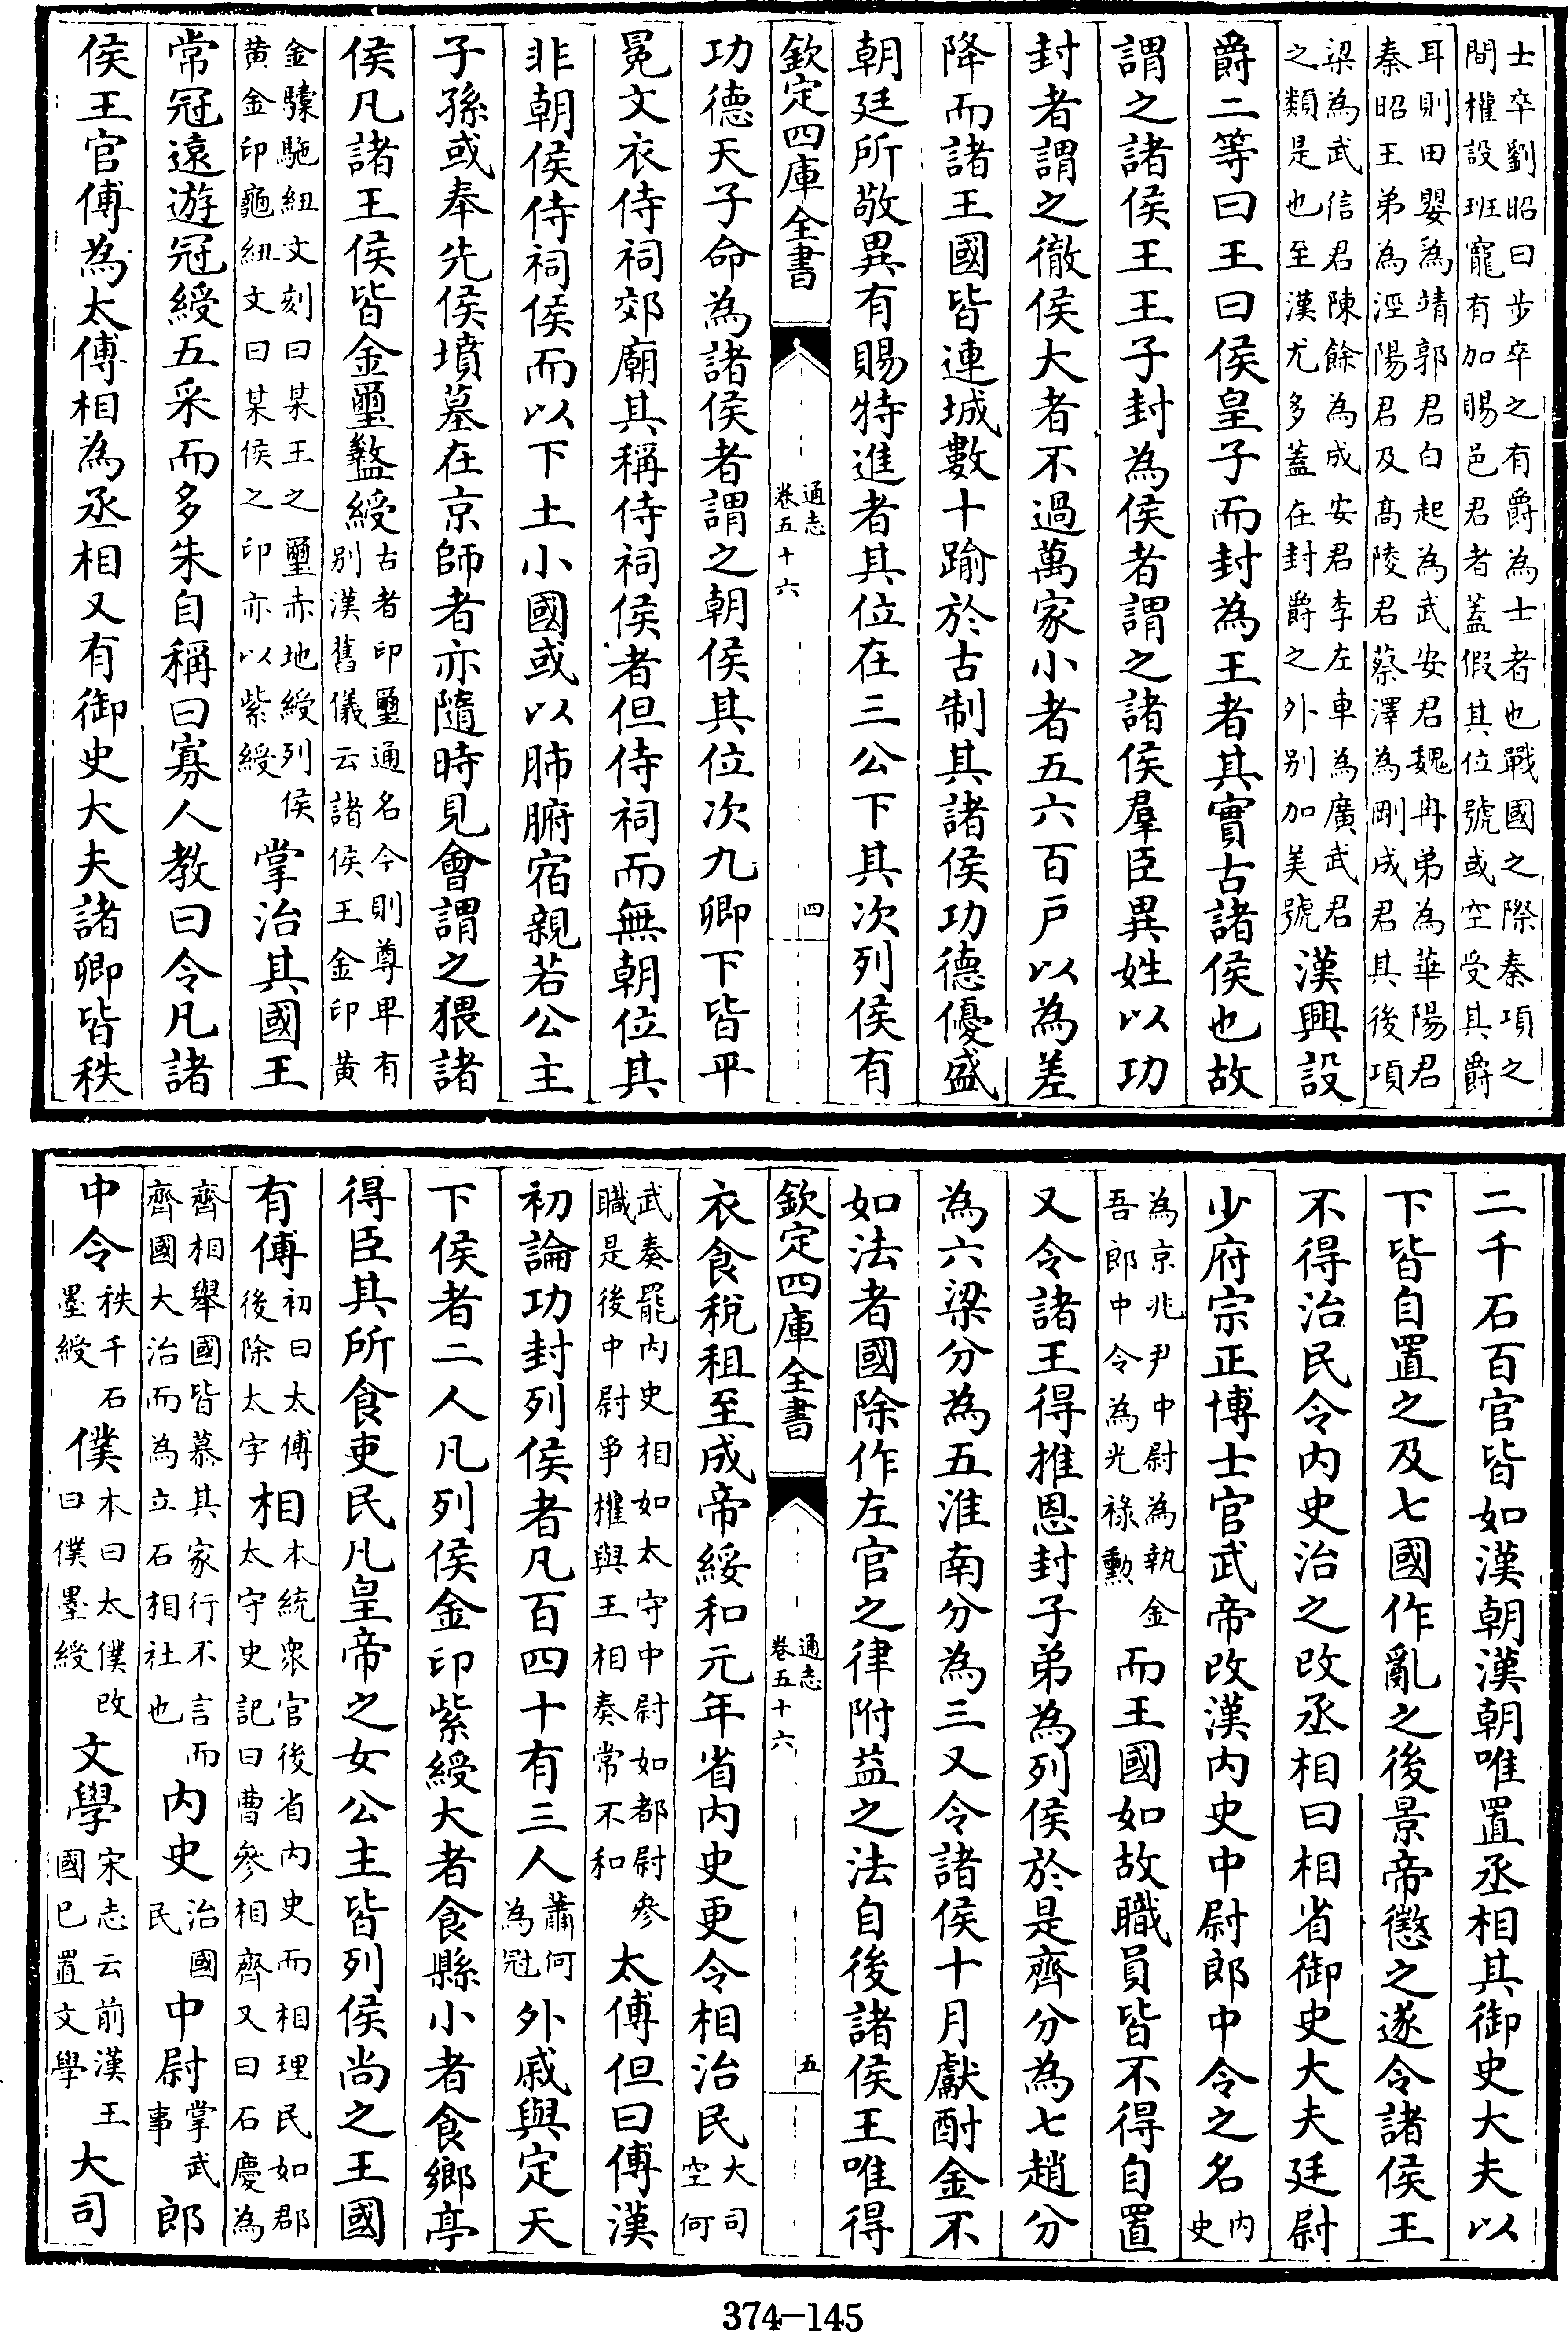 士卒劉昭曰步卒之有爵為士者也戰國之際秦項之
間權設班寵有加賜邑君者蓋假其位號或空受其爵
耳則田嬰為靖郭君白起為武安君魏冉弟為華陽君
秦昭王弟為涇陽君及高陵君蔡澤為剛成君其後項
梁為武信君陳餘為成安君李左車為廣武君
之類是也至漢尤多蓋在封爵之外别加美號漢興設
爵二等曰王曰侯皇子而封為王者其實古諸侯也故
謂之諸侯王王子封為侯者謂之諸侯羣臣異姓以功
封者謂之徹侯大者不過萬家小者五六百戶以為差
降而諸王國皆連城數十踰於古制其諸侯功德優盛
朝廷所敬異有賜特進者其位在三公下其次列侯有
欽定四庫全書
通志
卷五十六
四
功德天子命為諸侯者謂之朝侯其位次九卿下皆平
冕文衣侍祠郊廟其稱侍祠侯者但侍祠而無朝位其
非朝侯侍祠侯而以下土小國或以肺腑宿親若公主
子孫或奉先侯墳墓在京師者亦隨時見會謂之猥諸
侯凡諸王侯皆金璽盭綬
古者印璽通名今則尊卑有
别漢舊儀云諸侯王金印黄
金驝駞紐文刻曰某王之璽赤地綬列侯
黄金印龜紐文曰某侯之印亦以紫綬掌治其國王
常冠遠遊冠綬五采而多朱自稱曰寡人教曰令凡諸
侯王官傅為太傅相為丞相又有御史大夫諸卿皆秩
二千石百官皆如漢朝漢朝唯置丞相其御史大夫以
下皆自置之及七國作亂之後景帝懲之遂令諸侯王
不得治民令内史治之改丞相曰相省御史大夫廷尉
少府宗正博士官武帝改漢内史中尉郎中令之名
内
史
為京兆尹中尉為執金
吾郎中令為光祿勲而王國如故職員皆不得自置
又令諸王得推恩封子弟為列侯於是齊分為七趙分
為六梁分為五淮南分為三又令諸侯十月獻酎金不
如法者國除作左官之律附益之法自後諸侯王唯得
欽定四庫全書
通志
卷五十六
五
衣食稅租至成帝綏和元年省内史更令相治民
大司
空何
武奏罷内史相如太守中尉如都尉參
職是後中尉爭權與王相奏常不和太傅但曰傅漢
初論功封列侯者凡百四十有三人
蕭何
為冠
外戚與定天
下侯者二人凡列侯金印紫綬大者食縣小者食鄉亭
得臣其所食吏民凡皇帝之女公主皆列侯尚之王國
有傅
初曰太傅
後除太字
相
本統衆官後省内史而相理民如郡
太守史記曰曹參相齊又曰石慶為
齊相舉國皆慕其家行不言而
齊國大治而為立石相社也内史
治國
民
中尉
掌武
事
郎
中令
秩千石
墨綬
僕
本曰太僕改
曰僕墨綬
文學
宋志云前漢王
國已置文學
大司
374-145